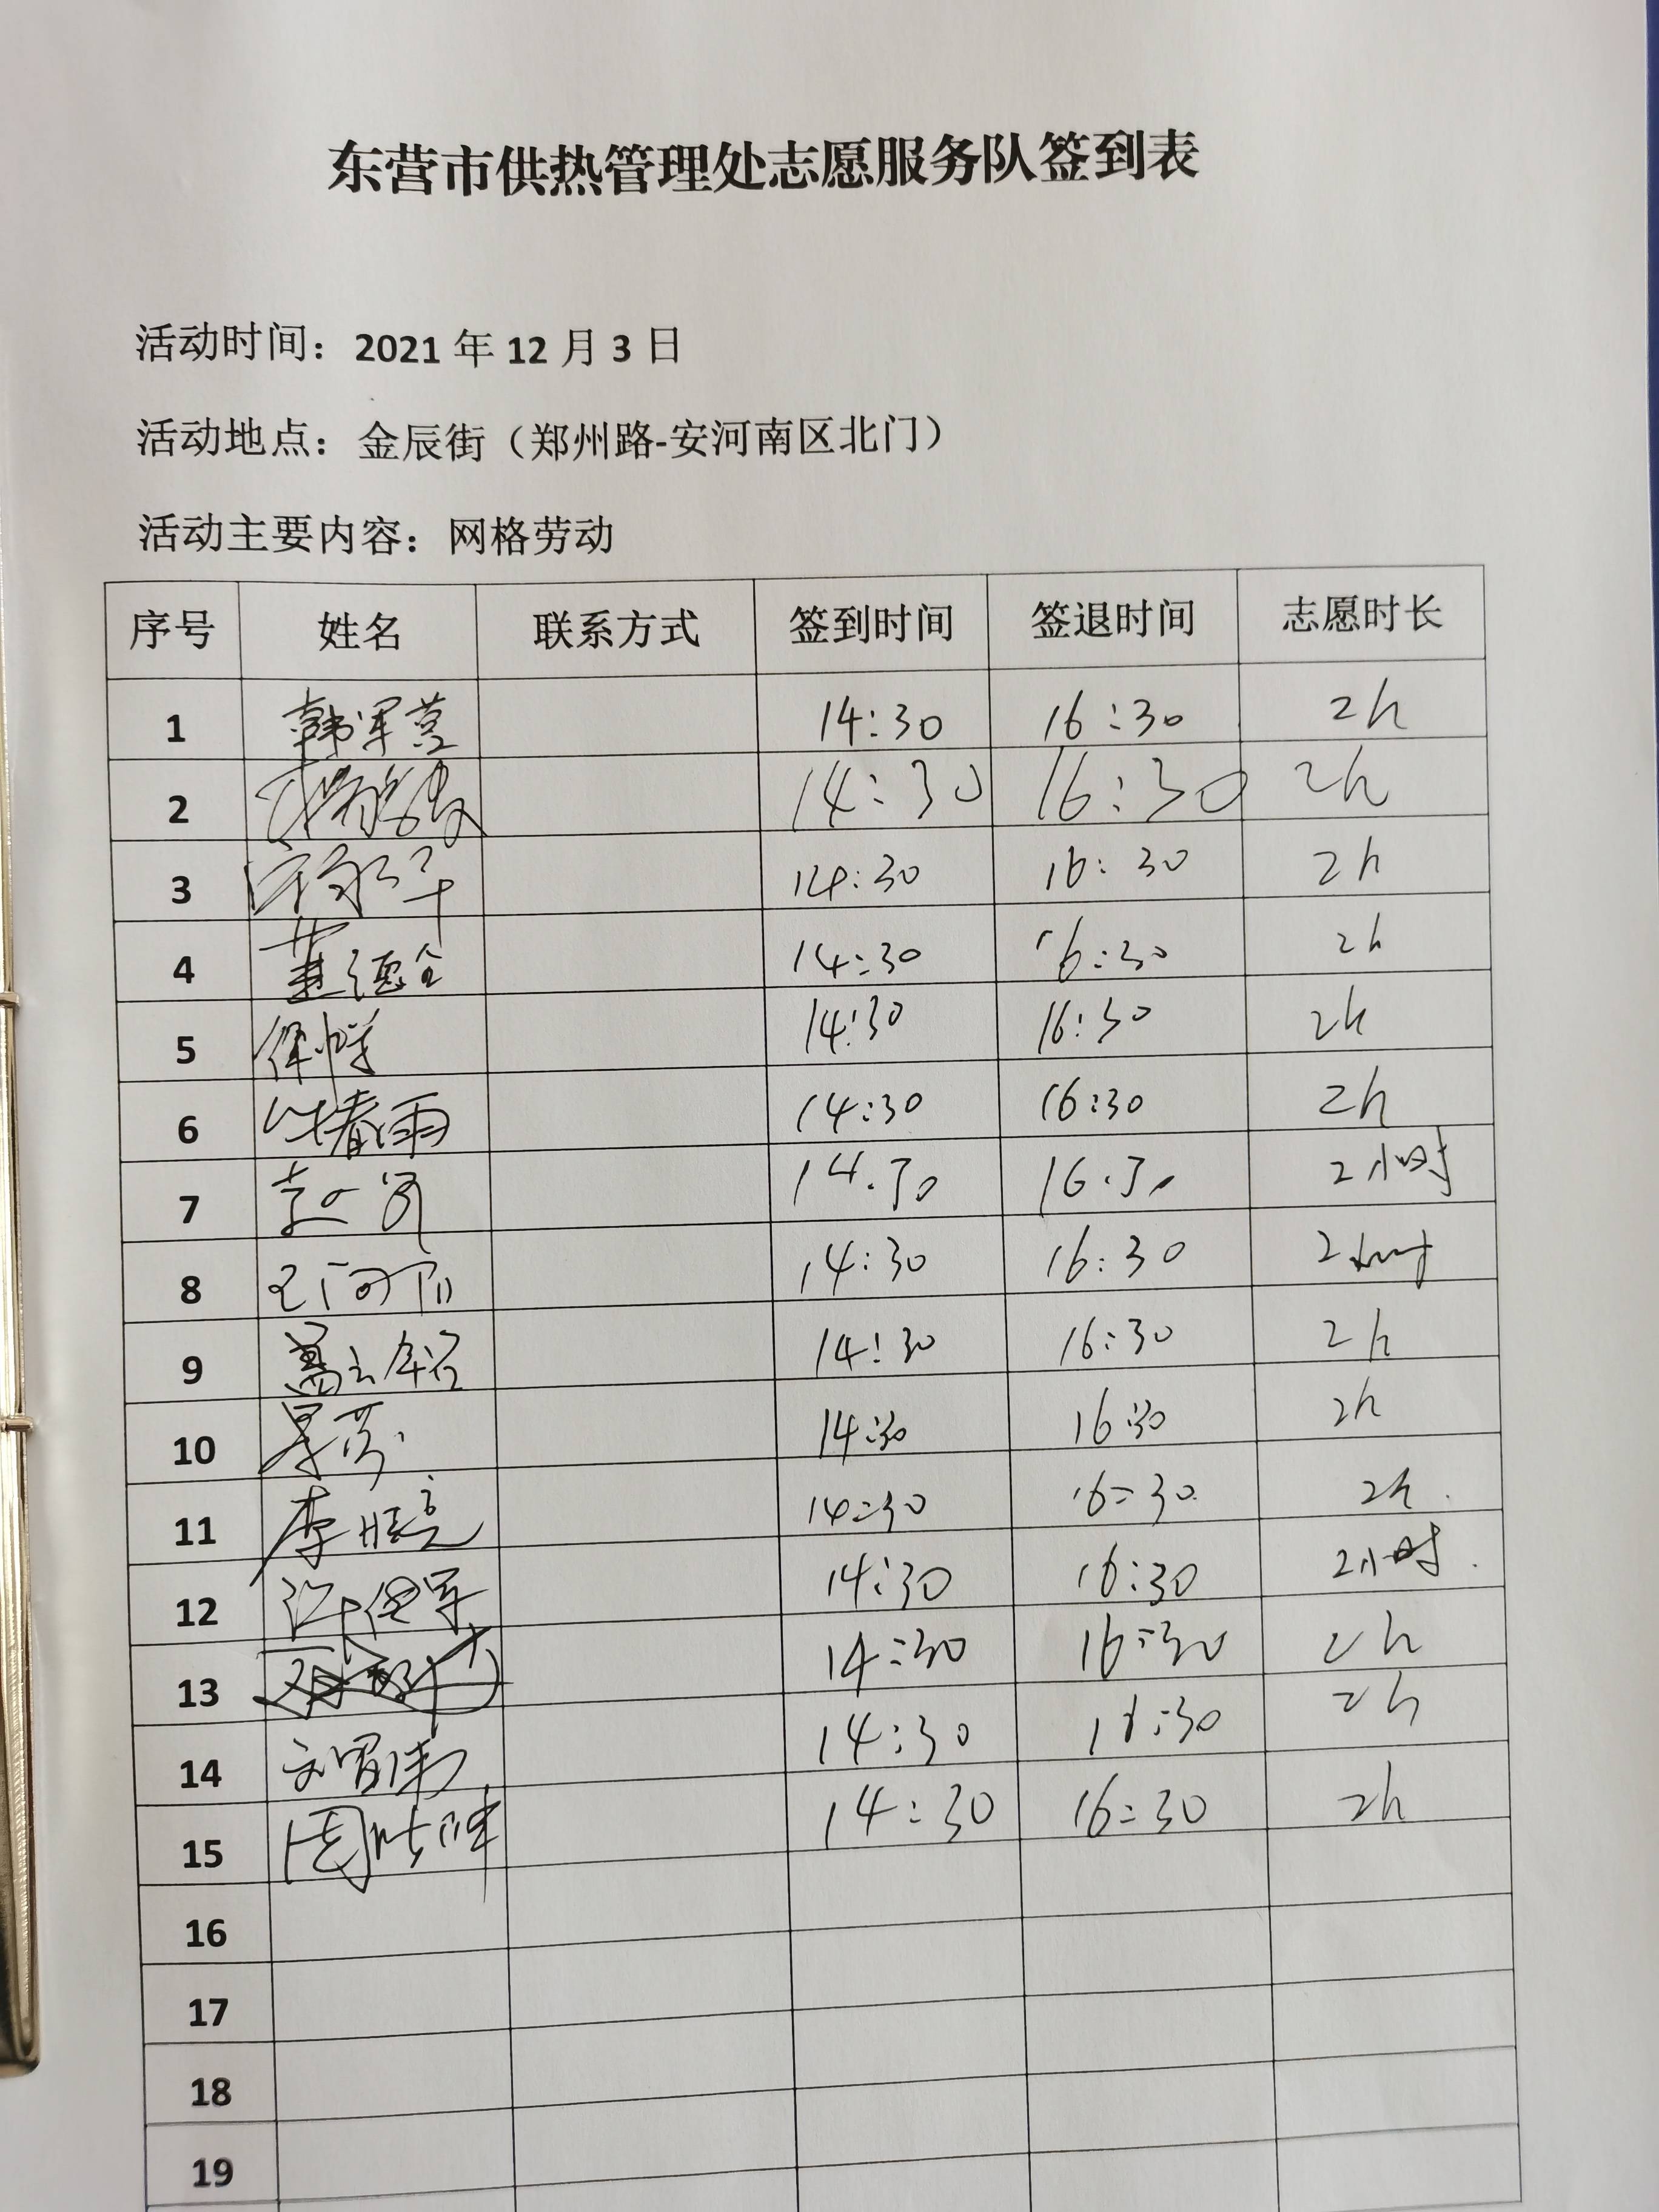 东营市供热管理处志愿服务队签到表
活动时间：2021 年 12 月 3 日
活动地点：金辰街（郑州路-安河南区北门）
活动主要内容：网格劳动
序号 姓名 联系方式 签到时间 签退时间 志愿时长
1 韩军营 14:30 16:30 2h
2 14:30 16:30 2h
3 14:30 16:30 2h
4 董德全 14:30 16:30 2h
5 14:30 16:30 2h
6 春雨 14:30 16:30 2h
7 14.30 16.30 2小时
8 14:30 16:30 2小时
9 14:30 16:30 2h
10 14:30 16:30 2h
11 李晓亮 14:30 16:30 2h.
12 许俊军 14:30 16:30 2小时.
13 14:30 16:30 2h
14 14:30 16:30 2h
15 周 14:30 16:30 2h
16
17
18
19